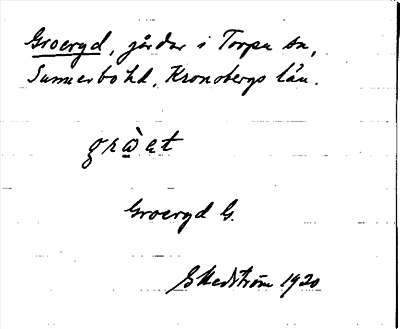 Groeryd, gårdar i Torpa sn,
Sunnerbo hd, Kronobergs län.
Groeryd G.
G Hedström 1920